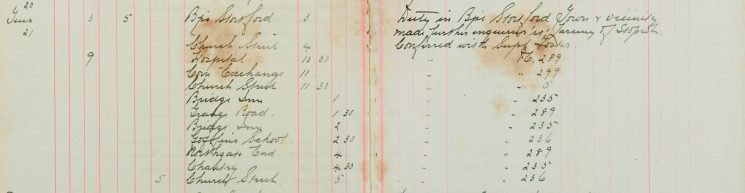 20
Tues 3 5 Bps Stortford 3 Duty in Bps Stortford Town & vicinity
21 made further inquiries re Larceny of
Church Street 4 Conferred with Supt
9 Hospital 10 30 " Pc 289
Corn Exchange 11 " " 299
Church Street 11 30 " " 5
Bridge Inn 1 " " 235
Grange Road. 1 30 " " 289
Bridge Inn 2 " " 235
School 2 30 " " 236
Northgate End 4 " " 289
Chantry 4 30 " " 235
5 Church Street. 5 " " 236